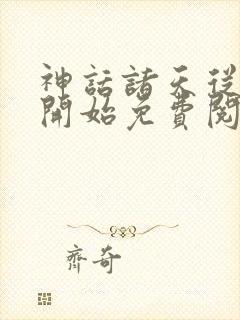 神話諸天從
開始免費閱
齊奇